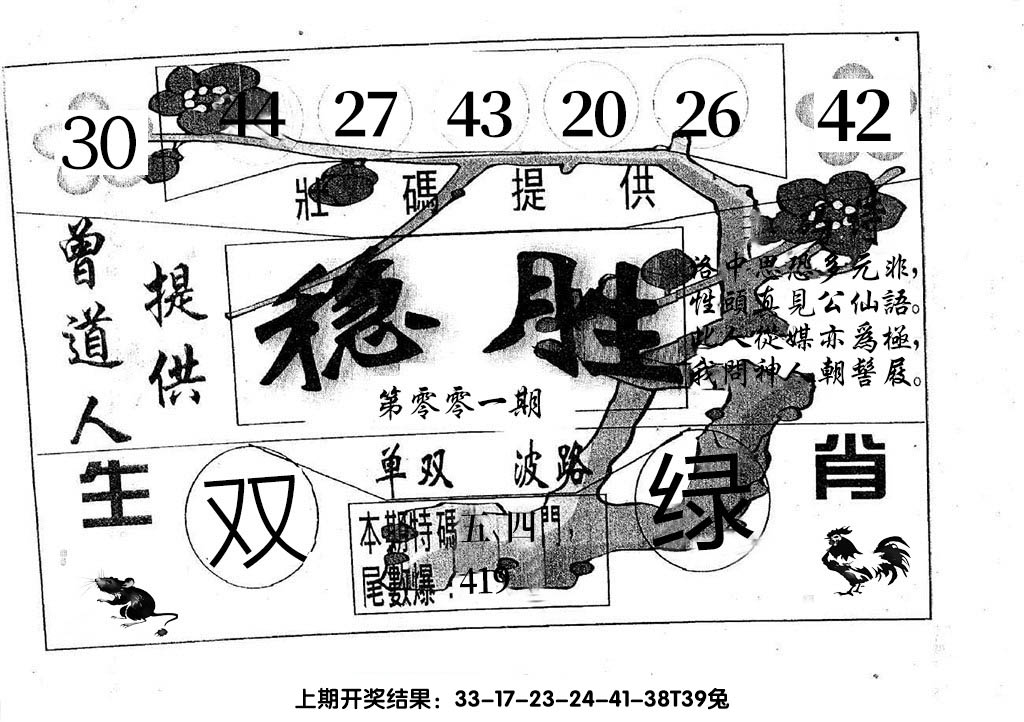 30 44 27 43 20 26 42
壯碼提供
曾道人
提供
稳胜
第零零一期
洛中思恐多元非，
性頭真見公仙語。
此人從媒亦爲極，
我問神人朝髻屐。
单双 波路
生 肖
双 绿
本期特碼五、四門，
尾數爆：419
上期开奖结果：33-17-23-24-41-38T39兔